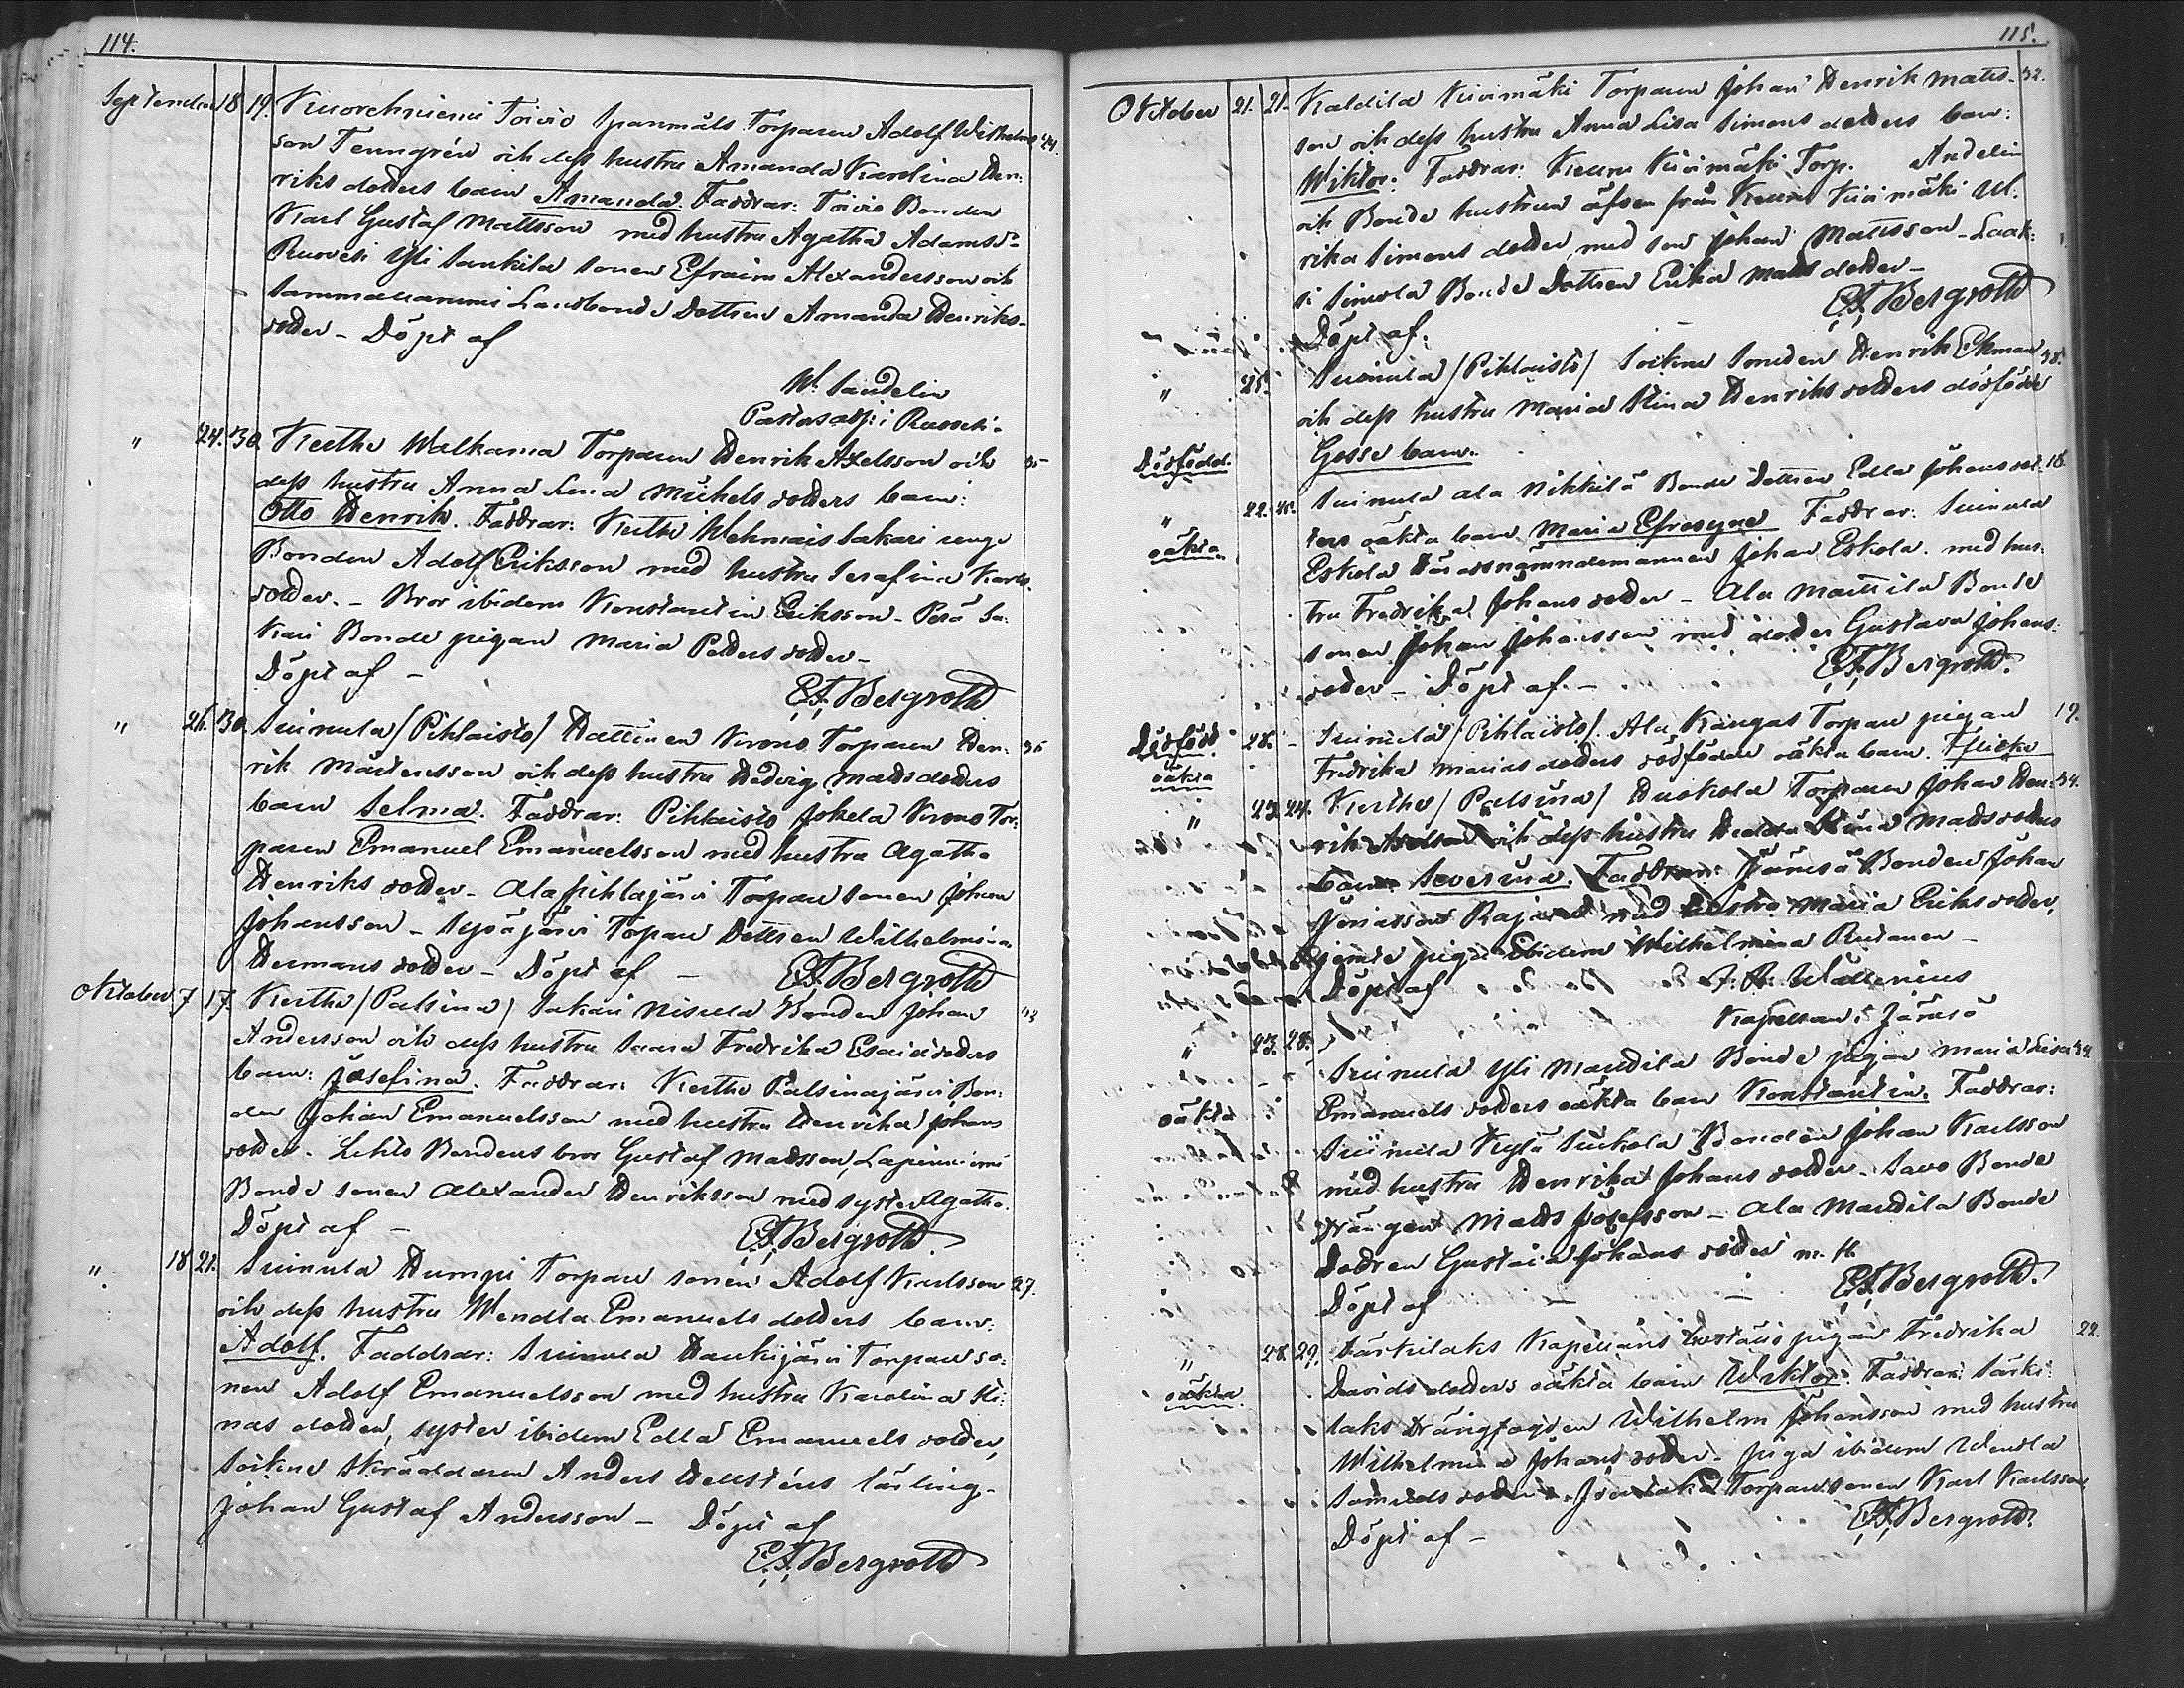 114.
September 18 19. Kuorehniemi Toivio Spanmåls Torparen Adolf Wilhelms 44.
son Tenngrén och dess hustru Amanda Karolina Hen:
riks dotters barn Amanda. Faddrar: Toivio Bonden
Karl Gustaf Mattsson med hustru Agatha Adamsd:
Ruovesi Yli Sankila sonen Efraim Alexandersson och
sammaniemi Landbonde Dottren Amanda Henriks-
dotter - Döpt af
W. Sandelin
Pastorsadj: i Ruovesi.
" 24. 30. Kertho Walkama Torparen Henrik Axelsson och 35
dess hustru Anna Lena Michels dotters barn:
Otto Henrik. Faddrar: Kertho Wehmais Sakari unge
Bonden Adolf Eriksson med hustru Serafina Karls
dotter. - Bror ibidem Konstantin Eriksson - Perä Sa:
kari Bonde pigan Maria Petters dotter -
Döpt af -
E. F. Bergroth
" 26. 30. Suinula /Pihlaisto/ Hattinen Krono Torparen Hen- 36
rik Mårtensson och dess hustru Hedvig Mattsdotters
barn Selma. Faddrar: Pihlaisto Jokela Krono Tor:
paren Emanuel Emanuelsson med hustru Agatha
Henriks dotter - Alapihlajärvi Torpare sonen Johan
Johansson - Syväjärvi Torpare Dottren Wilhelmina
Hermans dotter - Döpt af - E. F. Bergroth
October 7 17. Kertho /Palsina/ Sakari Nisula Bonden Johan 43
Andersson och dess hustru Saara Fredrika Esaiædotters
barn: Josefina. Faddrar: Kertho Palsinajärvi Bon:
den Johan Emanuelsson med hustru Henrika Johans
dotter. Lehto Bondens bror Gustaf Mattsson, Lapinniemi
Bonde sonen Alexander Henriksson med syster Agatha.
Döpt af - E. F. Bergroth.
" 18 21. Suinula Humpi Torpare sonen Adolf Karlsson 27.
och dess hustru Wendla Emanuels dotters barn:
Adolf. Faddrar: Suinula Haukijärvi Torpare so:
nen Adolf Emanuelsson med hustru Karolina Sti:
nas dotter, syster ibidem Edla Emanuels dotter,
Sockne skräddaren Anders Hellsténs lärling-
Johan Gustaf Andersson - Döpt af
E. F. Bergroth
115.
October 21. 21. Kaldila Kivimäki Torparen Johan Henrik Matts- 32.
son och dess hustru Anna Lisa Simons dotters barn:
Wiktor. Faddrar: Keuru Kivimäki Torp. Andelin
och Bonde hustrun äfven från Keuru Kivimäki Ul.
rika Simons dotter, med son Johan Mattsson - Laak:
si Simola Bonde Dottren Erika Matts dotter -
Döpt af. E. F. Bergroth
" 25. Suinula /Pihlaisto/ Sockne Smeden Henrik Ekman 38.
och dess hustru Maria Stina Henriks dotters dödfödde
Dödfödd. Gosse barn.
" 22. Suinula Ala Nikkilä Bonde Dottren Edla Johans dot 18.
oäkta ters oäkta barn Maria Efrosyne Faddrar: Suinula
Eskola Häradsnämndemannen Johan Eskola. med hus:
tru Fredrika Johans dotter - Ala Mattila Bonde
sonen Johan Johansson med dotter Gustava Johans:
dotter - Döpt af - E. F. Bergroth.
Dödfödd. 28. - Suinula /Pihlaisto/. Ala Kangas Torpare pigan 19.
oäkta Fredrika Marias dotters dödfödde oäkta barn. Flicka
" 23 24. Kertho /Palsina/ Huskola Torparen Johan Hen: 34.
rik Axelsson och dess hustru Hedda Stina Mattsdotters
barn Severina. Faddrar: Jämsä Bonden Johan
med hustru Maria Eriks dotter,
jemte piga Ibidem Wilhelmina Rutanen -
Döpt af J. R. Wallenius
Kapellan i Jämsä
" 23. 28. Suinula Yli Mandila Bonde pigan Maria Lisa 34.
oäkta Emanuels dotters oäkta barn Konstantin. Faddrar:
Suinula Kylä Siukola Bonden Johan Karlsson
med hustru Henrika Johans dotter. Savo Bonde
drängen Matts Josefsson - Ala Mandila Bonde
Dottren Gustava Johans dotter m. fl.
Döpt af - - E. F. Bergroth.
" 28. 29. Särkilaks Kapellans pigan Fredrika 22.
oäkta Davids dotters oäkta barn Wiktor. Faddrar: Särki:
laks Drängfogden Wilhelm Johansson med hustru
Wilhelmina Johans dotter. Piga ibidem Wendla
Samuels dotter. Torparesonen Karl Karlsson
Döpt af - E. F. Bergroth.